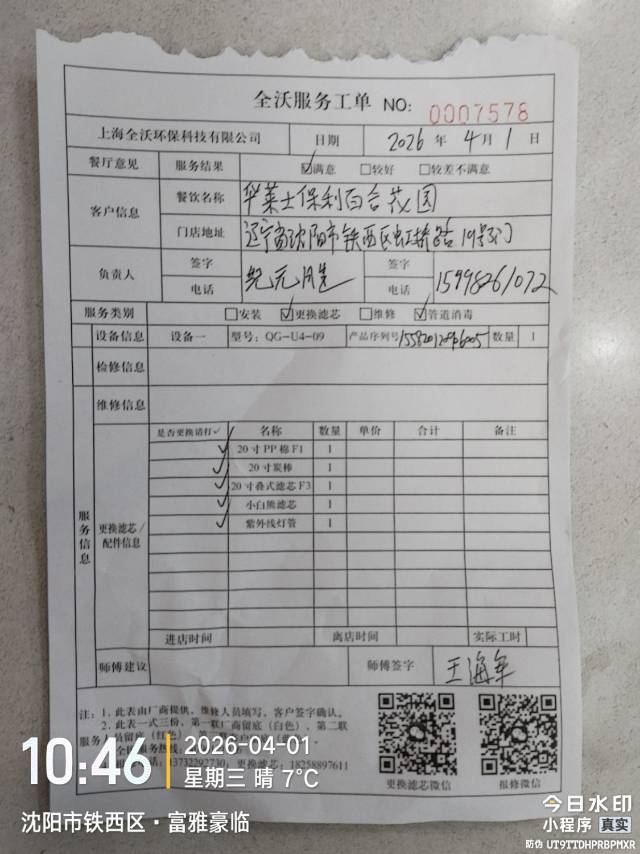 全沃服务工单 NO: 0007578
上海全沃环保科技有限公司 日期 2026 年 4 月 1 日
餐厅意见 服务结果 ☑满意 □较好 □较差不满意
客户信息 餐饮名称 华莱士保利百合花园
门店地址 辽宁省沈阳市铁西区虹桥路19号3门
负责人 签字 签字
电话 电话 15998261072
服务类别 □安装 ☑更换滤芯 □维修 ☑管道消毒
设备信息 设备一 型号: QG-U4-09 产品序列号 数量 1
检修信息
维修信息
服务信息
更换滤芯/
配件信息
是否更换请打✓ 名称 数量 单价 合计 备注
✓ 20寸PP棉F1 1
✓ 20寸炭棒 1
✓ 20寸叠式滤芯F3 1
✓ 小白熊滤芯 1
✓ 紫外线灯管 1
进店时间 离店时间 实际工时
师傅建议 师傅签字 王海军
注: 1、此表由厂商提供, 维修人员填写, 客户签字确认。
2、此表一式三份, 第一联厂商留底(白色), 第二联
服务人员留底
服务热线
03732292730 更换滤芯: 18258897611
更换滤芯微信 报修微信
10:46
2026-04-01
星期三 晴 7℃
沈阳市铁西区·富雅豪临
今日水印
小程序 真实
防伪 UT9TTDHPRBPMXR